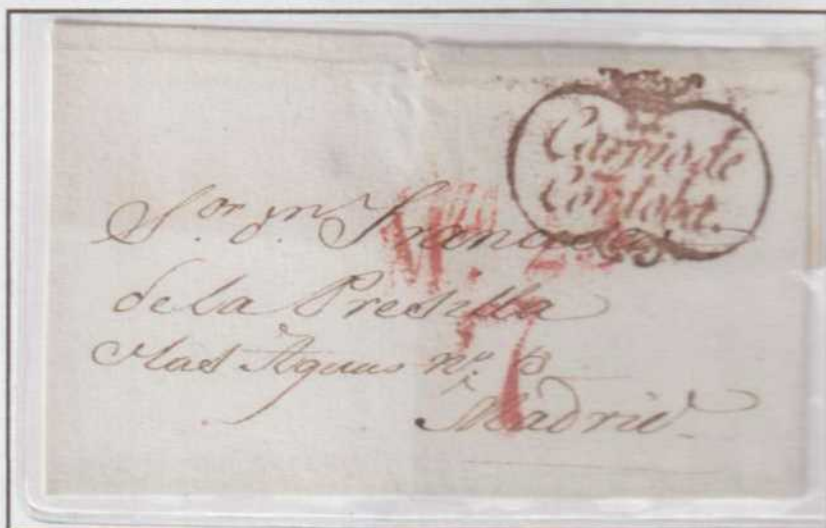 Carpio de
Córdoba.
S.or d.n Francisco
de la Presilla
C/ las Aguas n.o 3
Madrid
7